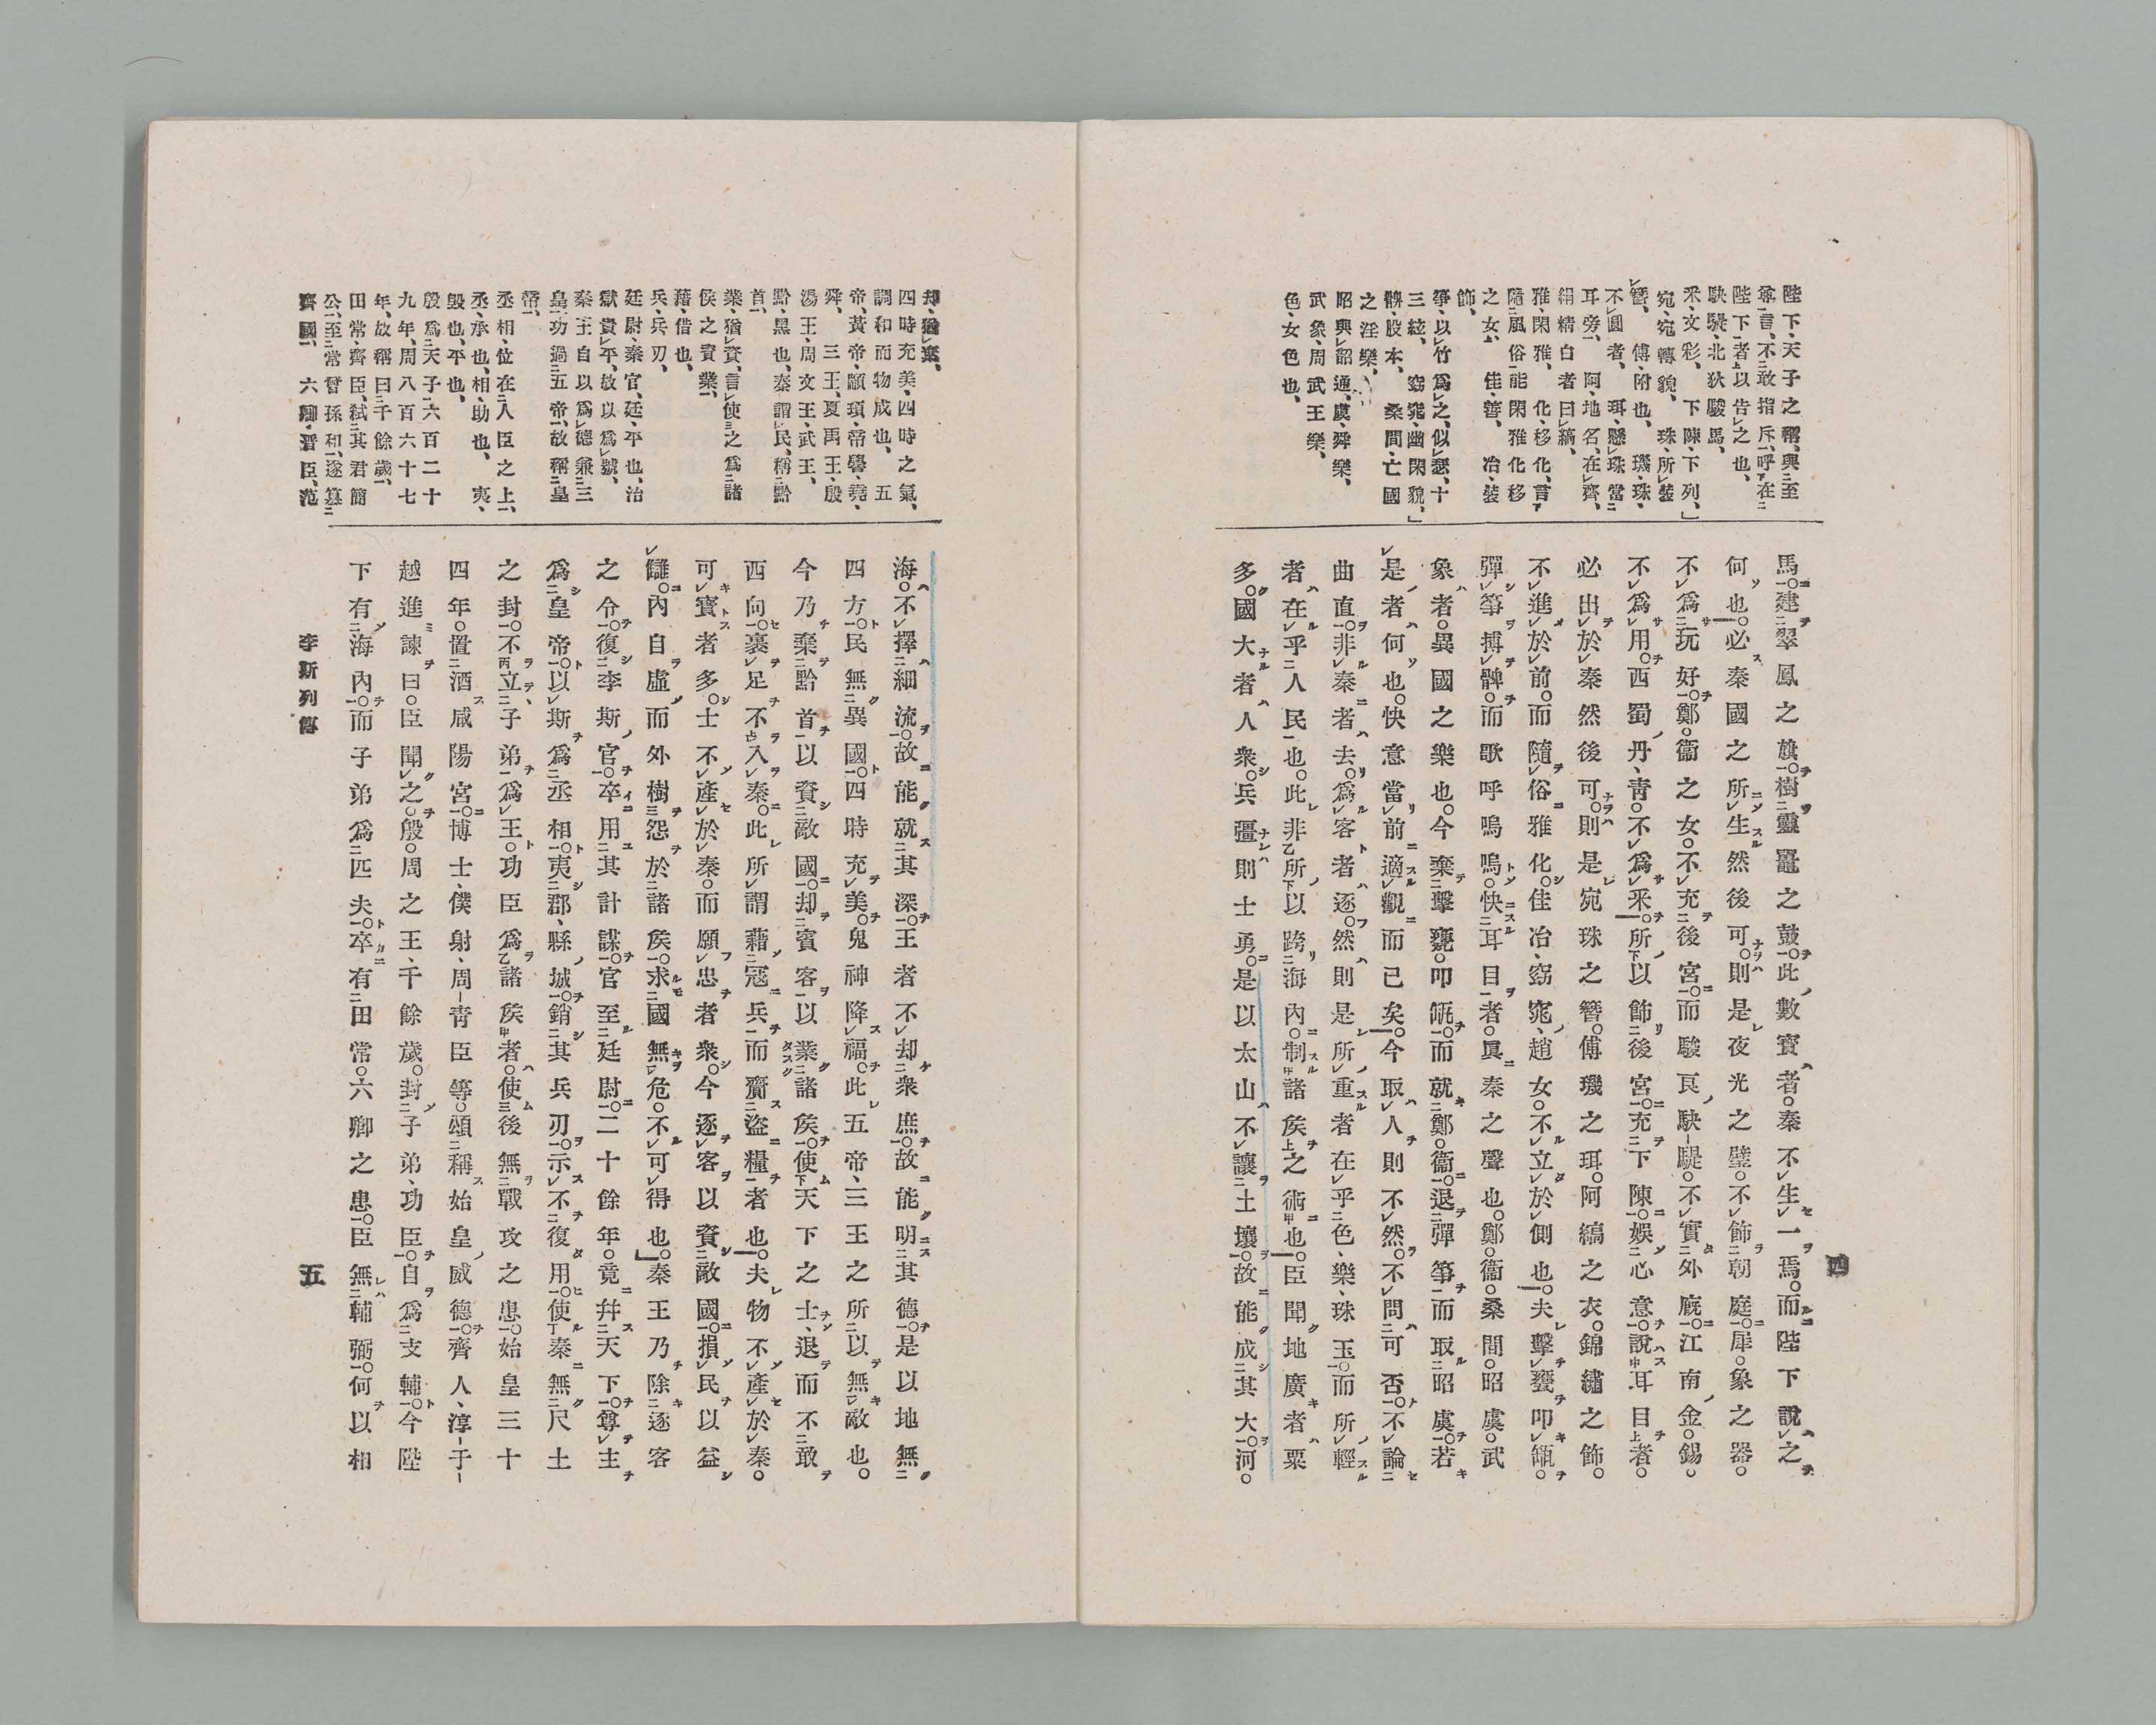 四
陛下、天子之稱、與至
尊言、不敢指斥、呼在
陛下者以告之也、
駃騠、北狄駿馬、
釆、文彩、 下陳、下列、」
宛、宛轉貌、 珠、所裝
簪、 傅、附也、 璣、珠、
不圓者、 珥、懸珠當
耳旁、 阿、地名、在齊、
絹精白者曰縞、
雅、閑雅、 化、移化、言
隨風俗能閑雅化移
之女、 佳、善、 冶、裝
飾、
箏、以竹爲之、似瑟、十
三絃、 窈窕、幽閑貌、」
髀、股本、 桑間、亡國
之淫樂、
昭與韶通、虞、舜樂、
武象、周武王樂、
色、女色也、
馬。建翠鳳之旗。樹靈鼉之鼓。此數寶者。秦不生一焉。而陛下說之
何也。必秦國之所生然後可。則是夜光之璧。不飾朝庭。犀。象之器。
不爲玩好。鄭。衞之女。不充後宮。而駿良駃騠。不實外廐。江南金。錫。
不爲用。西蜀丹、靑。不爲釆。所以飾後宮。充下陳。娛心意。說耳目者。
必出於秦然後可。則是宛珠之簪。傅璣之珥。阿縞之衣。錦繡之飾。
不進於前。而隨俗雅化。佳冶、窈窕、趙女。不立於側也。夫擊甕叩缻。
彈箏搏髀。而歌呼嗚嗚。快耳目者。眞秦之聲也。鄭。衞。桑間。昭虞。武
象者。異國之樂也。今棄擊甕。叩缻。而就鄭。衞。退彈箏而取昭虞。若
是者何也。快意當前適觀而已矣。今取人則不然。不問可否。不論
曲直。非秦者去。爲客者逐。然則是所重者在乎色、樂、珠玉。而所輕
者在乎人民也。此非所以跨海內。制諸矦之術也。臣聞地廣者粟
多。國大者人衆。兵彊則士勇。是以太山不讓土壤。故能成其大。河。
却、猶棄、
四時充美、四時之氣、
調和而物成也、 五
帝、黃帝、顓頊、帝嚳、堯、
舜、 三王、夏禹王、殷
湯王、周文王、武王、
黔、黑也、秦謂民、稱黔
首、
業、猶資、言使之爲諸
侯之資業、
藉、借也、
兵、兵刃、
廷尉、秦官、廷、平也、治
獄貴平、故以爲號、
秦王自以爲德兼三
皇、功過五帝、故稱皇
帝、
丞相、位在人臣之上、
丞、承也、相、助也、 夷、
毀也、平也、
殷爲天子六百二十
九年、周八百六十七
年、故稱曰千餘歲、
田常、齊臣、弑其君簡
公、至常曾孫和、遂簒
齊國、 六卿、晉臣、范
海。不擇細流。故能就其深。王者不却衆庶。故能明其德。是以地無
四方。民無異國。四時充美。鬼神降福。此五帝、三王之所以無敵也。
今乃棄黔首以資敵國。却賓客以業諸矦。使天下之士、退而不敢
西向。裹足不入秦。此所謂藉寇兵而齎盜糧者也。夫物不產於秦。
可寶者多。士不產於秦。而願忠者衆。今逐客以資敵國。損民以益
讎。內自虛而外樹怨於諸矦。求國無危。不可得也。」秦王乃除逐客
之令。復李斯官。卒用其計謀。官至廷尉。二十餘年。竟幷天下。尊主
爲皇帝。以斯爲丞相。夷郡、縣城。銷其兵刃。示不復用。使秦無尺土
之封。不立子弟爲王。功臣爲諸矦者。使後無戰攻之患。始皇三十
四年。置酒咸陽宮。博士、僕射、周靑臣等。頌稱始皇威德。齊人、淳于
越進諫曰。臣聞之。殷。周之王、千餘歲。封子弟、功臣。自爲支輔。今陛
下有海內。而子弟爲匹夫。卒有田常。六卿之患。臣無輔弼。何以相
李斯列傳
五